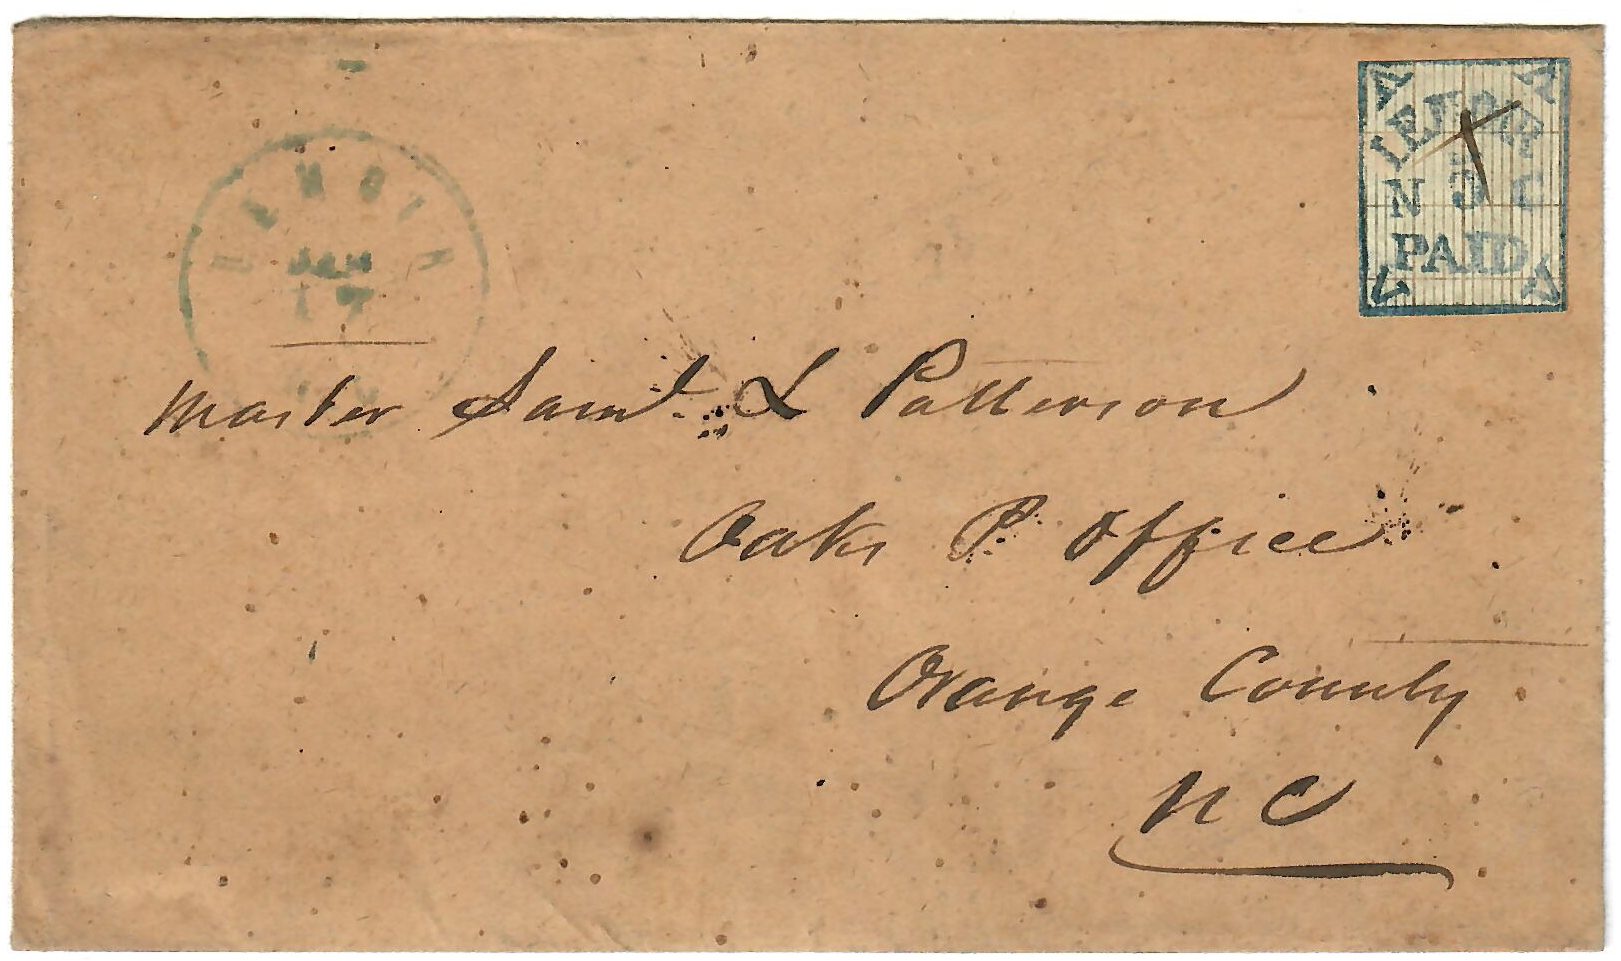 LENOIR
JAN
17
A A
LENOIR
N 5 C
PAID
V V
Master Saml L Patterson
Oaks P Office
Orange County
N C